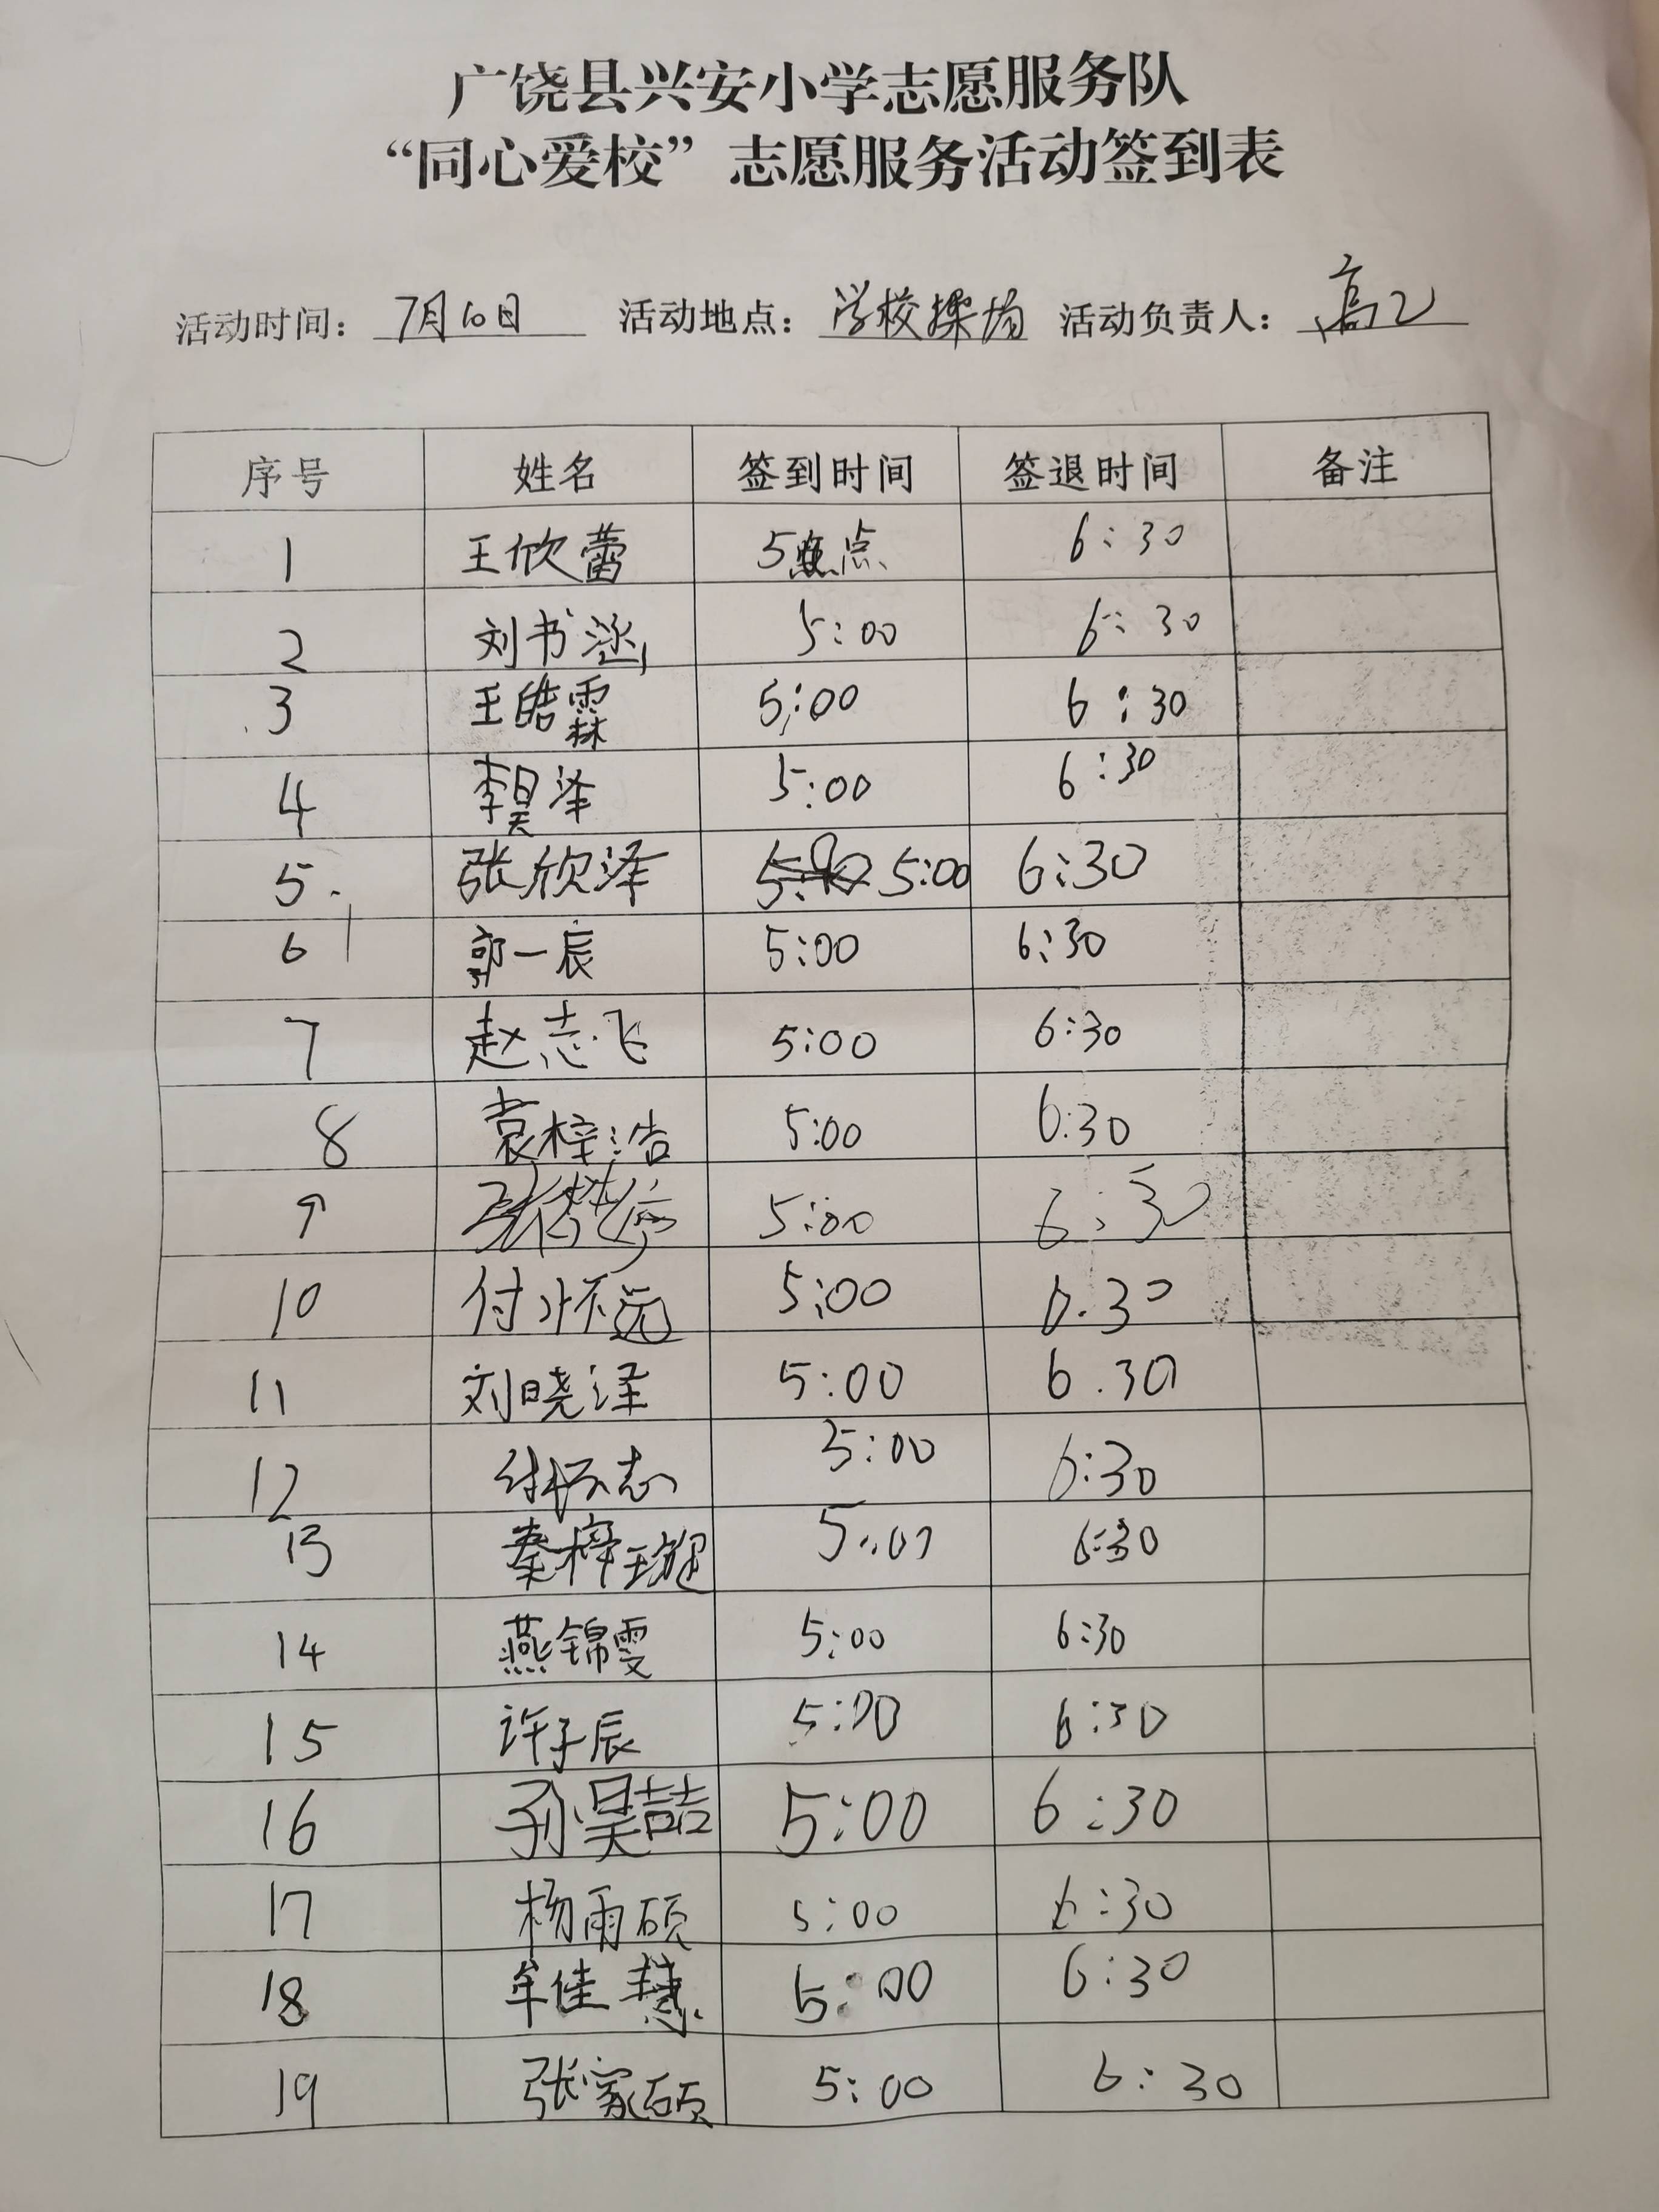 广饶县兴安小学志愿服务队
“同心爱校”志愿服务活动签到表
活动时间：7月10日 活动地点：学校操场 活动负责人：高
序号 姓名 签到时间 签退时间 备注
1 王欣蕾 5点 6:30
2 刘书涵 5:00 6:30
3 王皓霖 5:00 6:30
4 李昊泽 5:00 6:30
5. 张欣泽 5:00 6:30
6 郭一辰 5:00 6:30
7 赵志飞 5:00 6:30
8 袁梓浩 5:00 6:30
9 5:00 6:30
10 付怀远 5:00 6.30
11 刘晓泽 5:00 6.30
12 5:00 6:30
13 秦梓璇 5:00 6:30
14 燕锦雯 5:00 6:30
15 许子辰 5:00 6:30
16 孙昊喆 5:00 6:30
17 杨雨硕 5:00 6:30
18 牟佳慧 5:00 6:30
19 张家硕 5:00 6:30